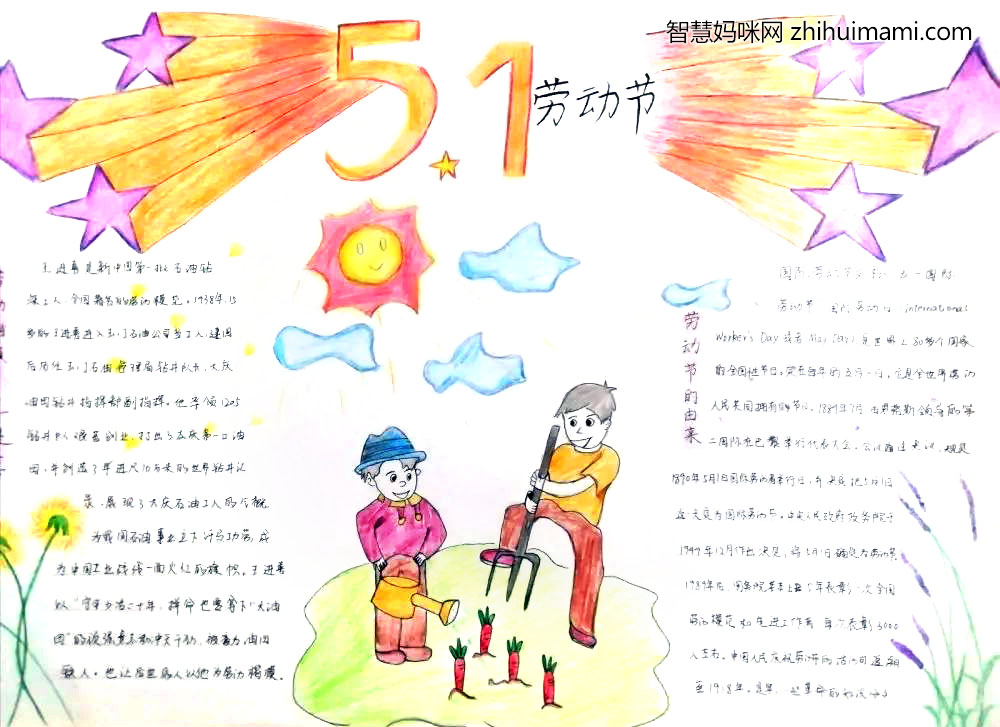 智慧妈咪网 zhihuimami.com
5.1
劳动节
王进喜是新中国第一批石油钻
采工人,全国著名的劳动模范。1938年,15
岁的王进喜进入玉门石油公司当工人,建国
后历任玉门石油管理局钻井队长、大庆
油田钻井指挥部副指挥。他率领1205
钻井队艰苦创业,打出了大庆第一口油
田,并创造了年进尺10万米的世界钻井纪
录,展现了大庆石油工人的气概,
为我国石油事业立下了功劳,成
为中国工业战线一面火红的旗帜。王进喜
以"宁可少活二十年,拼命也要拿下大油
田"的顽强意志和冲天干劲,被誉为油田
铁人。也让后世病人以他为劳动楷模。
劳动节的由来
国际劳动节又称五一国际
劳动节 国际劳动日 international
Worker's Day 或者 May Day) 是世界上80多个国家
的全国性节日。定在每年的五月一日。它是全世界劳动
人民共同拥有的节日。1889年7月 由恩格斯领导的第
二国际在巴黎举行代表大会。会议通过决议,规定
1890年5月1日国际劳动者举行日,并决定把5月1日
这一天定为国际劳动节。中央人民政府政务院于
1949年12月作出决定,将5月1日确定为劳动节
1989年后,国务院基本上每5年表彰一次全国
劳动模范和先进工作者 每次表彰3000
人左右。中国人民庆祝劳动节的活动可追溯
至1918年。是年,